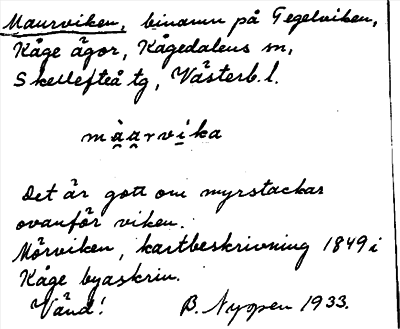 Maurviken, binamn på Tegelviken,
Kåge ägor, Kågedalens sn,
Skellefteå tg, Västerb.l.
mà̯a̯rvi̯ka
Det är gott om myrstackar
ovanför viken.
Mörviken, kartbeskrivning 1849 i
Kåge byaskrin.
Vänd! B. Nygren 1933.